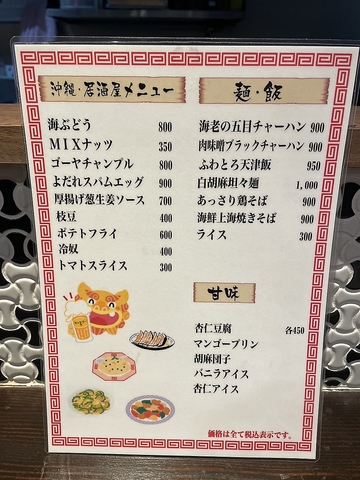 沖縄・居酒屋メニュー
海ぶどう 800
MIXナッツ 350
ゴーヤチャンプル 800
よだれスパムエッグ 900
厚揚げ葱生姜ソース 700
枝豆 400
ポテトフライ 600
冷奴 400
トマトスライス 300
麺・飯
海老の五目チャーハン 900
肉味噌ブラックチャーハン 900
ふわとろ天津飯 950
白胡麻坦々麺 1,000
あっさり鶏そば 900
海鮮上海焼きそば 900
ライス 300
甘味
杏仁豆腐 各450
マンゴープリン
胡麻団子
バニラアイス
杏仁アイス
価格は全て税込表示です。